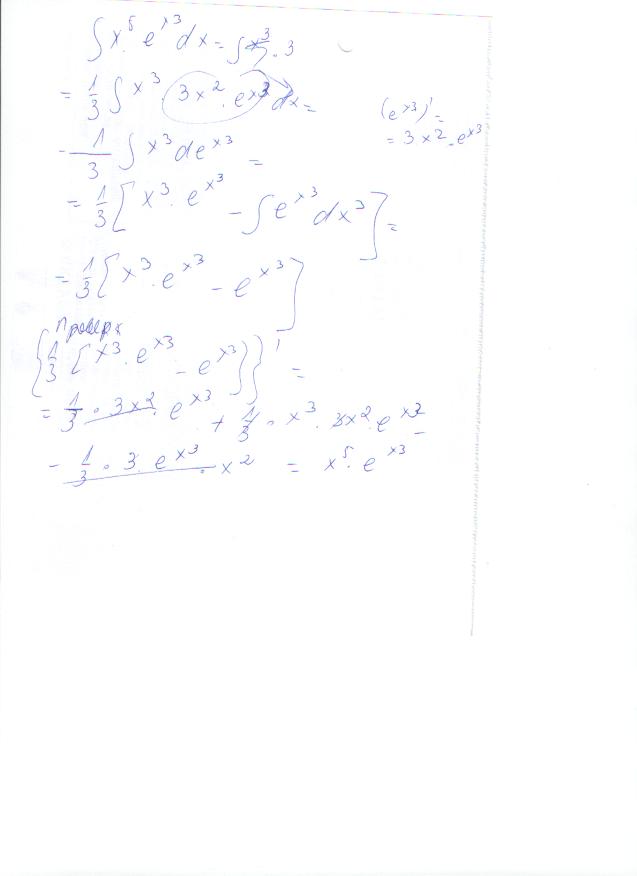 ∫x⁵·e^x³ dx = ∫x³·3
= 1/3 ∫ x³ 3x²·e^x³ dx =
(e^x³)' =
= 3x²·e^x³
- 1/3 ∫ x³ de^x³ =
= 1/3 [x³·e^x³ - ∫e^x³ dx³] =
= 1/3 [x³·e^x³ - e^x³]
{1/3 [x³·e^x³ - e^x³]}' =
= 1/3 · 3x²·e^x³ + 1/3 · x³·3x²·e^x³ -
- 1/3 · 3·e^x³·x² = x⁵·e^x³